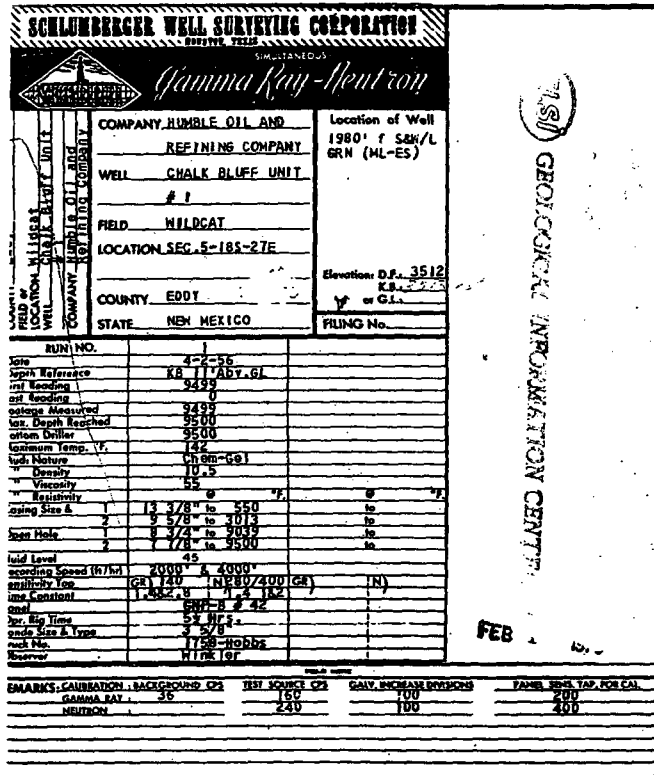 SCHLUMBERGER WELL SURVEYING CORPORATION
HOUSTON, TEXAS
SIMULTANEOUS
Gamma Ray-Neutron
COMPANY HUMBLE OIL AND
REFINING COMPANY
WELL CHALK BLUFF UNIT
# 1
FIELD WILDCAT
LOCATION SEC.5-18S-27E
COUNTY EDDY
STATE NEW MEXICO
Location of Well
1980' f S&W/L
GRN (ML-ES)
Elevation: D.F.: 3512
K.B.:
or G.L.:
FILING No.
FIELD or
LOCATION Wildcat
WELL Chalk Bluff Unit
#1
COMPANY Humble Oil and
Refining Company
RUN NO. 1
Date 4-2-56
Depth Reference KB 11'Abv.GL
First Reading 9499
Last Reading 0
Footage Measured 9499
Max. Depth Reached 9500
Bottom Driller 9500
Maximum Temp. °F. 142
Mud: Nature Chem-Gel
" Density 10.5
" Viscosity 55
" Resistivity @ °F. @ °F.
Casing Size & 1 13 3/8" to 550 to
2 9 5/8" to 3013 to
Open Hole 1 8 3/4" to 9039 to
2 7 7/8" to 9500 to
Fluid Level 45
Recording Speed (ft/hr) 2000' & 4000'
Sensitivity Tap GR) 140 N)280/400 GR) N)
Time Constant
Panel GNP-B # 42
Opr. Rig Time 5½ Hrs.
Sonde Size & Type 3 5/8"
Truck No. 1758-Hobbs
Observer Winkler
REMARKS: CALIBRATION: BACKGROUND CPS TEST SOURCE CPS GALV. INCREASE DIVISIONS PANEL SENS. TAP. FOR CAL.
GAMMA RAY 56 160 100 200
NEUTRON 240 100 400
GEOLOGICAL INFORMATION CENTER
FEB